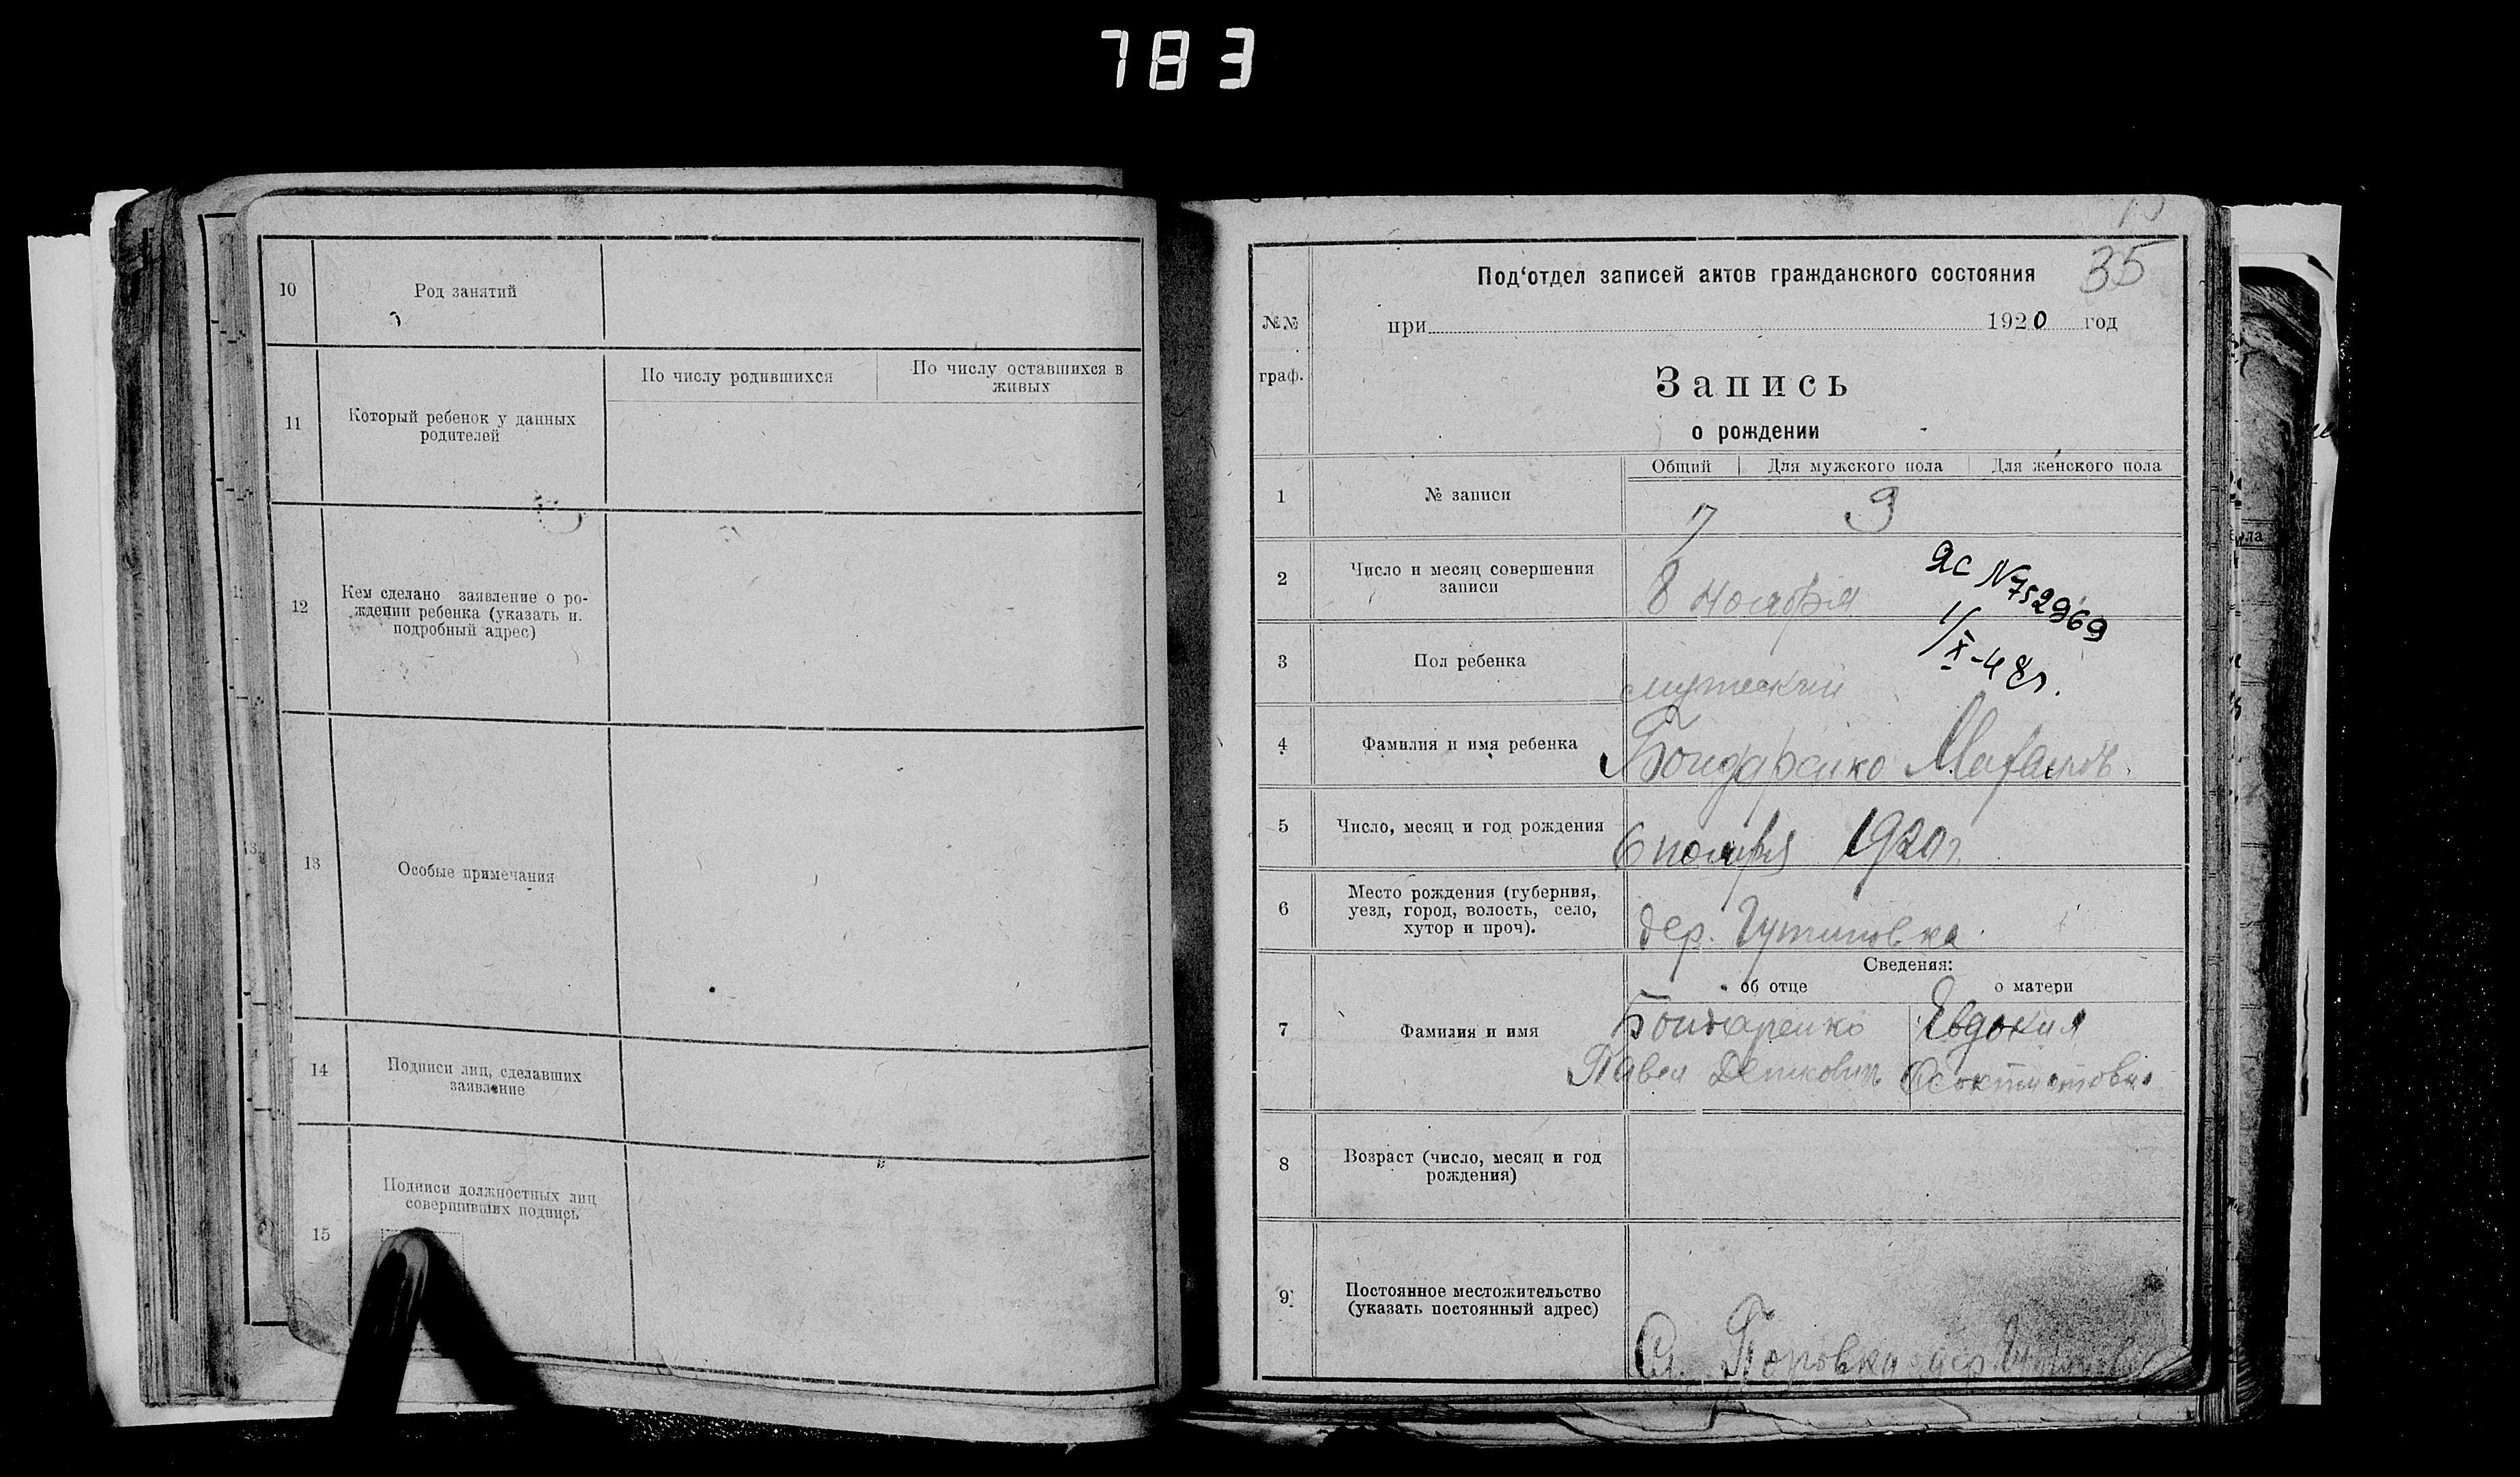 783
10
Род занятий
11
Который ребенок у данных
родителей
По числу родившихся
По числу оставшихся в
живых
12
Кем сделано заявление о ро-
ждении ребенка (указать и
подробный адрес)
13
Особые примечания
14
Подписи лиц, сделавших
заявление
15
Подписи должностных лиц
совершивших подпись
35
Под‘отдел записей актов гражданского состояния
№№
граф.
при 1920 год
Запись
о рождении
Общий Для мужского пола Для женского пола
1
№ записи
7 3
2
Число и месяц совершения
записи
8 ноября
ЯС №752969
1/X-48г.
3
Пол ребенка
мужеский
4
Фамилия и имя ребенка
Бондаренко
5
Число, месяц и год рождения
6 ноября 1920 г.
6
Место рождения (губерния,
уезд, город, волость, село,
хутор и проч).
дер.
Сведения:
об отце о матери
7
Фамилия и имя
Бондаренко Евдокия
Павел
8
Возраст (число, месяц и год
рождения)
9
Постоянное местожительство
(указать постоянный адрес)
дер.